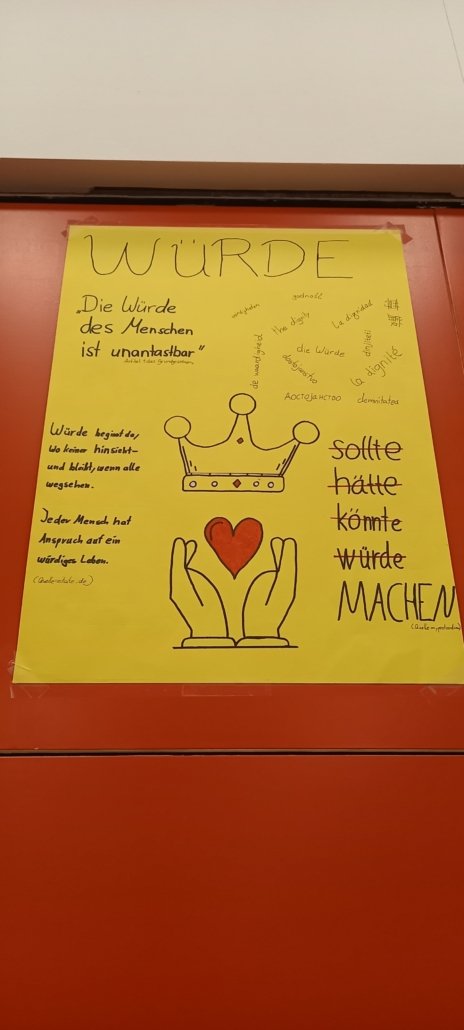 WÜRDE
„Die Würde
des Menschen
ist unantastbar"
godność
the dignity
La dignidad
de waardigheid
die Würde
dinjiteti
dostojanstvo
la dignité
Достојанство
demnitatea
Würde beginnt da,
wo keiner hinsieht-
und bleibt, wenn alle
wegsehen.
Jeder Mensch hat
Anspruch auf ein
würdiges Leben.
sollte
hätte
könnte
würde
MACHEN